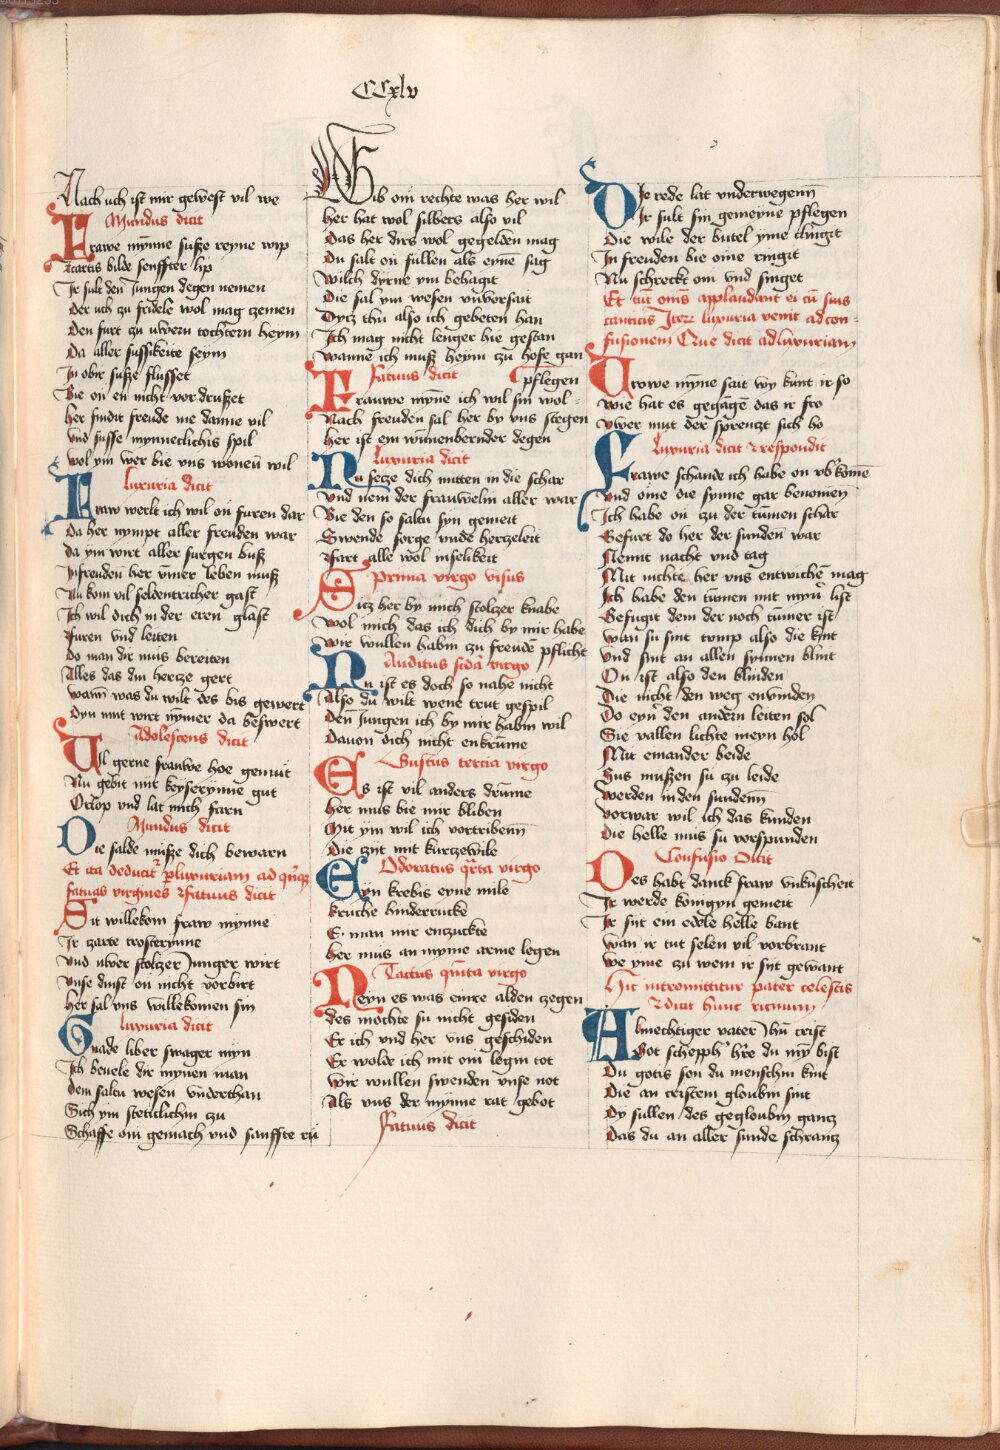 CCxlv
Nach uch ist mir gewest vil we
Mundus dicit
Frawe mynne susze reyne wip
Zcartis bilde senffter lip
Ir sult den Jungen degen nemen
Der uch zu fridele wol mag zemen
Den furt zu uwern tochtern heym
Da aller sussikeite seym
In obir susze flusset
Bie on en nicht vor druszet
Her findit freude me danne vil
Und susse mynneclichis spil
Wol ym wer bie uns wonen wil
luxuria dicit
Fraw werlt ich wil on furen dar
Da her nympt aller freuden war
Da ym wirt aller surgen busz
In freuden her ymer leben musz
Nu kom vil seldentricher gast
Ich wil dich in der eren glast
Furen und leiten
Do man dir mus bereiten
Alles das din hertze gert
Wann was du wilt des bis gewert
Dyn mut wirt nymer da beswert
Adolescens dicit
Vil gerne frauwe hoe gemut
Nu gebit mir keyserynne gut
Orlop und lat mich farn
Mundus dicit
Die salde musze dich bewarn
Et ita deducitur per luxuriam ad quinque
fatuas virgines et fatuus dicit
Sit willekom fraw mynne
Ir zarte trosterynne
Und uwer stolzer Junger wirt
Unse dinst on nicht vorbirt
Her sal uns willekomen sin
luxuria dicit
Gnade liber swager myn
Ich bevele dir mynen man
Dem saltu wesen underthan
Sich ym steticlichin zu
Schaffe om gemach und sanffte ru
Gib om rechte was her wil
Her hat wol silbers also vil
Das her dirs wol gegelden mag
Du salt on fullen als eynen sag
Wilch dyrne ym behagit
Die sal ym wesen unvorsait
Dytz thu also ich gebeten han
Ich mag nicht lenger hie gestan
Wanne ich musz heym zu hofe gan
Fatuus dicit pflegen
Frauwe myne ich wil sin wol-
Nach freuden sal her by uns stegen
Her ist ein wunnenbernder degen
luxuria dicit
Nu setze dich mitten in die schar
Und nem der frauwelin aller war
Bie den so saltu syn gemeit
Swende sorge unde hertzeleit
Fart alle wol mselikeit
Prima virgo visus
Sitz her by mich stolzer knabe
Wol mich das ich dich by mir habe
Wir wullen habin zu freude pflicht
Auditus secunda virgo
Nu ist es doch so nahe nicht
Also du wilt wene trut gespil
Den Jungen ich by mir habin wil
Davon dich nicht enkrume
Gustus tercia virgo
Es ist vil anders drume
Her mus bie mir bliben
Mit ym wil ich vortribenn
Die zyt mit kurczewile
Odoratus quarta virgo
Eyn krebis eyne mile
Kruche hinderrucke
E man mir enzuckte
Her mus an myme arme legen
Tactus quinta virgo
Neyn es was einre alden zegen
Des mochte su nicht gesiden
Er ich und her uns geschiden
Er wolde ich mit om legin tot
Wir wullen swenden unse not
Als uns der mynne rat gebot
Fatuus dicit
Die rede lat underwegenn
Ir sult sin gemeyne pflegen
Die wile der butel yme clingit
In freuden bie oine ringit
Nu schreckt om und singet
Et tunc omnes applaudant ei cum suis
canticis Item luxuria venit ad con-
fusionem Que dicit ad luxuriam
Vrowe myne sait wy kunt ir so
Wie hat es gegangen das ir fro
Uwer mut der sprenzt sich ho
luxuria dicit et respondit
Frawe schande ich habe on ubirkomen
Und oine die synne gar benomen
Ich habe on zu der tumen schar
Gefurt do her der sunden war
Nemt nacht und tag
Mit nichte her uns entwichen mag
Ich habe den tumen mit myner list
Gefugit dem der noch tumer ist
Wan su sint tump also die kynt
Und sint an allen synnen blint
On ist also den blinden
Die nicht den weg envinden
Do eyner den andern leiten sol
Sie vallen lichte in eyn hol
Mit einander beide
Sus muszen su zu leide
Werden in den sundenn
Vorwar wil ich das kunden
Die helle mus su vorspunden
Confusio dicit
Des habt danck fraw unkuscheit
Ir werde konigyn gemeit
Ir sijt ein edele helle bant
Wan ir tut selen vil vorbrant
We yme zu wem ir sijt gewant
Hic intromittitur pater celestis
et dicat hunc ricmum
Almechtiger vater Jhesu crist
Got schepphere du myn bist
Du gotis son du menschin kint
Die an cristem gloubin sint
Dy sullen des gegloubin gantz
Das du an aller sunde schrantz